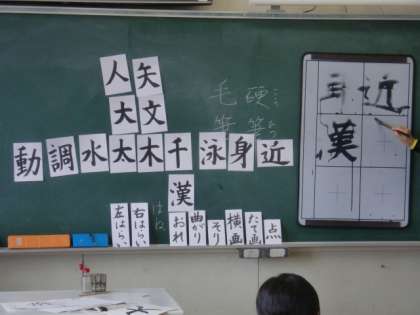 人矢
大文
動調水太木千泳身近
漢
毛筆
硬筆
左はらい
右はらい
はね
おれ
曲がり
そり
横画
たて画
点
身近
漢